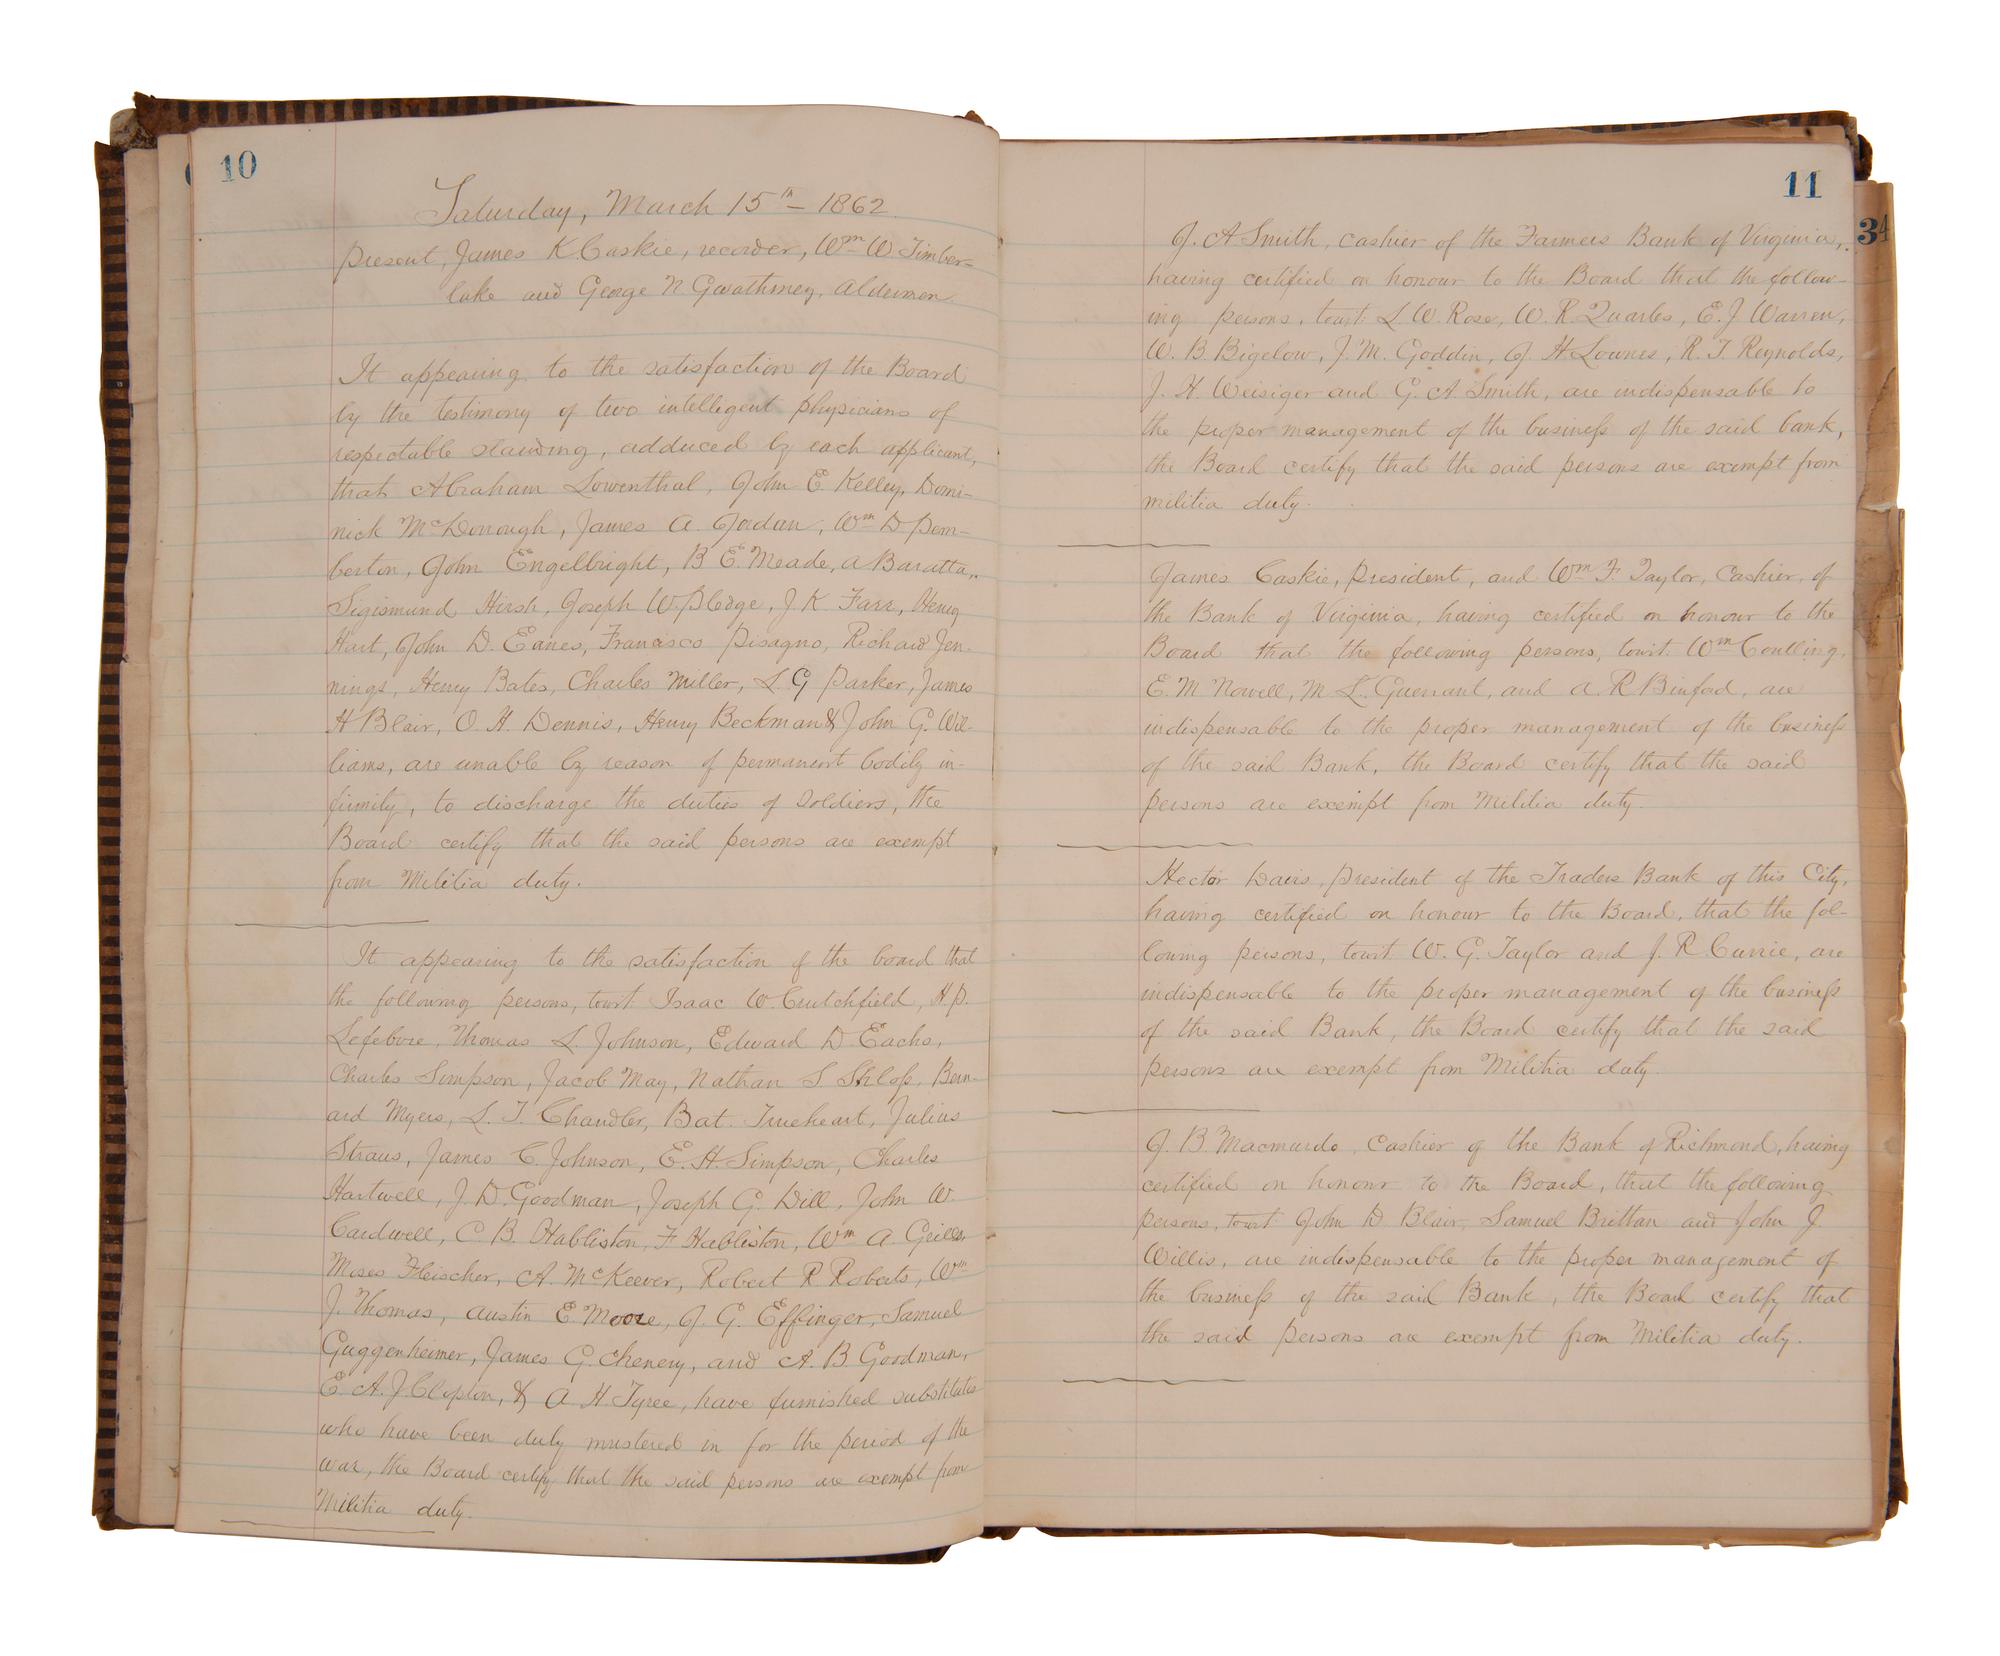 10
Saturday, March 15th – 1862.
Present, James K Caskie, recorder, Wm W Timber-
lake and George N Gwathmey, Aldermen
It appearing to the satisfaction of the Board
by the testimony of two intelligent physicians of
respectable standing, adduced by each applicant,
that Abraham Lowenthal, John E Kelley, Domi-
nick McDonough, James A. Jordan, Wm D Pem-
berton, John Engelbright, B E Meade, A Baratta,
Sigismund Hirsh, Joseph W Pledge, J K Farr, Henry
Hart, John D. Eanes, Francisco Pisagno, Richard Jen-
nings, Henry Bates, Charles Miller, L G Parker, James
H Blair, O. H. Dennis, Henry Beckman & John G. Wil-
liams, are unable by reason of permanent bodily in-
firmity, to discharge the duties of soldiers, the
Board certify that the said persons are exempt
from Militia duty.
It appearing to the satisfaction of the board that
the following persons, towit: Isaac W. Crutchfield, H. P.
Lefebvre, Thomas L. Johnson, Edward D Eacho,
Charles Simpson, Jacob May, Nathan S. Shloss, Bern-
ard Myers, L. T. Chandler, Bat. Trueheart, Julius
Straus, James C. Johnson, E. H. Simpson, Charles
Hartwell, J. D. Goodman, Joseph G. Dill, John W.
Cardwell, C B. Habliston, F. Habliston, Wm A
Moses Fleischer, A. McKeever, Robert R Roberts, Wm
J. Thomas, Austin E. Moore, J. G. Effinger, Samuel
Guggenheimer, James G. Chenery, and A. B Goodman,
E. A. J. Clopton, & A H. Tyree, have furnished substitutes
who have been duly mustered in for the period of the
war, the Board certify that the said persons are exempt from
Militia duty.
11
34
J. A Smith, cashier of the Farmers Bank of Virginia,
having certified on honour to the Board that the follow-
ing persons, towit: L. W. Rose, W. R. Quarles, E. J Warren,
W. B. Bigelow, J. M. Goddin, J. H Lownes, R. T. Reynolds,
J. H. Weisiger and G. A. Smith, are indispensable to
the proper management of the business of the said bank,
the Board certify that the said persons are exempt from
militia duty.
James Caskie, President, and Wm F. Taylor, Cashier, of
the Bank of Virginia, having certified on honour to the
Board that the following persons, towit: Wm Coulling,
E. M Nowell, M L. Guerrant, and A. R Binford, are
indispensable to the proper management of the business
of the said Bank, the Board certify that the said
persons are exempt from Militia duty.
Hector Davis, President of the Traders Bank of this City,
having certified on honour to the Board, that the fol-
lowing persons, towit W. G. Taylor and J. R. Currie, are
indispensable to the proper management of the business
of the said Bank, the Board certify that the said
persons are exempt from Militia duty.
J. B. Macmurdo, Cashier of the Bank of Richmond, having
certified on honour to the Board, that the following
persons, towit: John D. Blair, Samuel Brittan and John J.
Willis, are indispensable to the proper management of
the business of the said Bank, the Board certify that
the said persons are exempt from Militia duty.